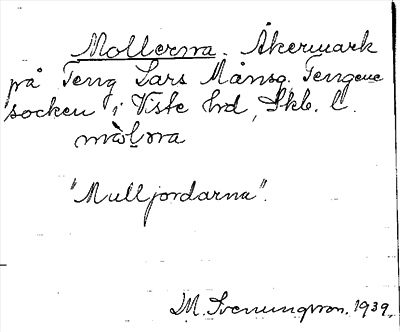 Mollerna. Åkermark
på Teng Lars Månsg. Tengene
socken i Viste hrd, Skb. l.
"Mulljordarna".
M. Svenungsson. 1939.